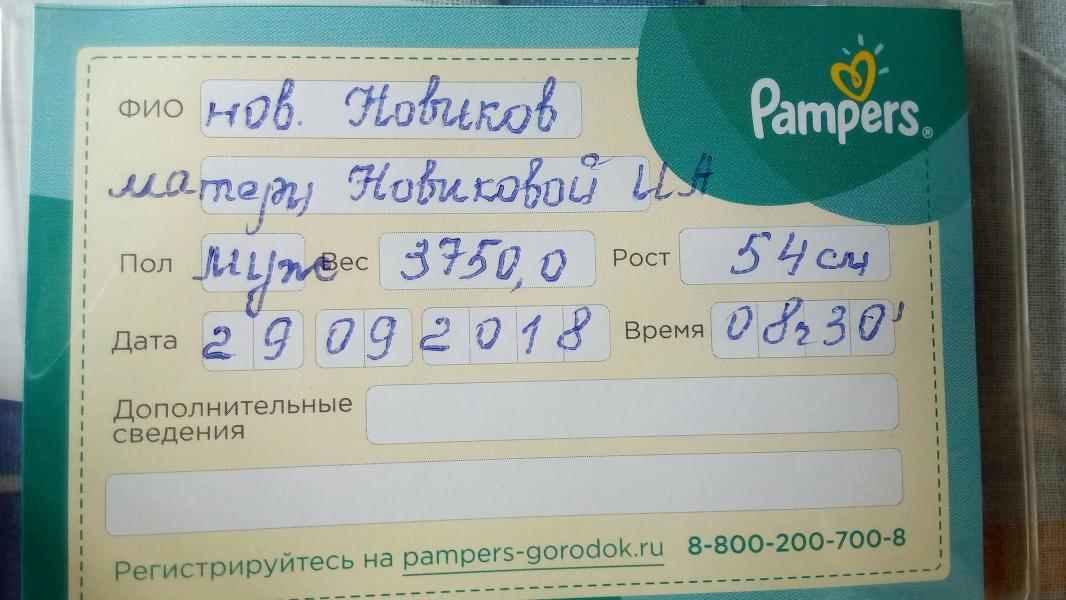 Pampers®
ФИО нов. Новиков
матери Новиковой И А
Пол муж Вес 3750,0 Рост 54 см
Дата 29 09 2018 Время 08ч30'
Дополнительные
сведения
Регистрируйтесь на pampers-gorodok.ru 8-800-200-700-8